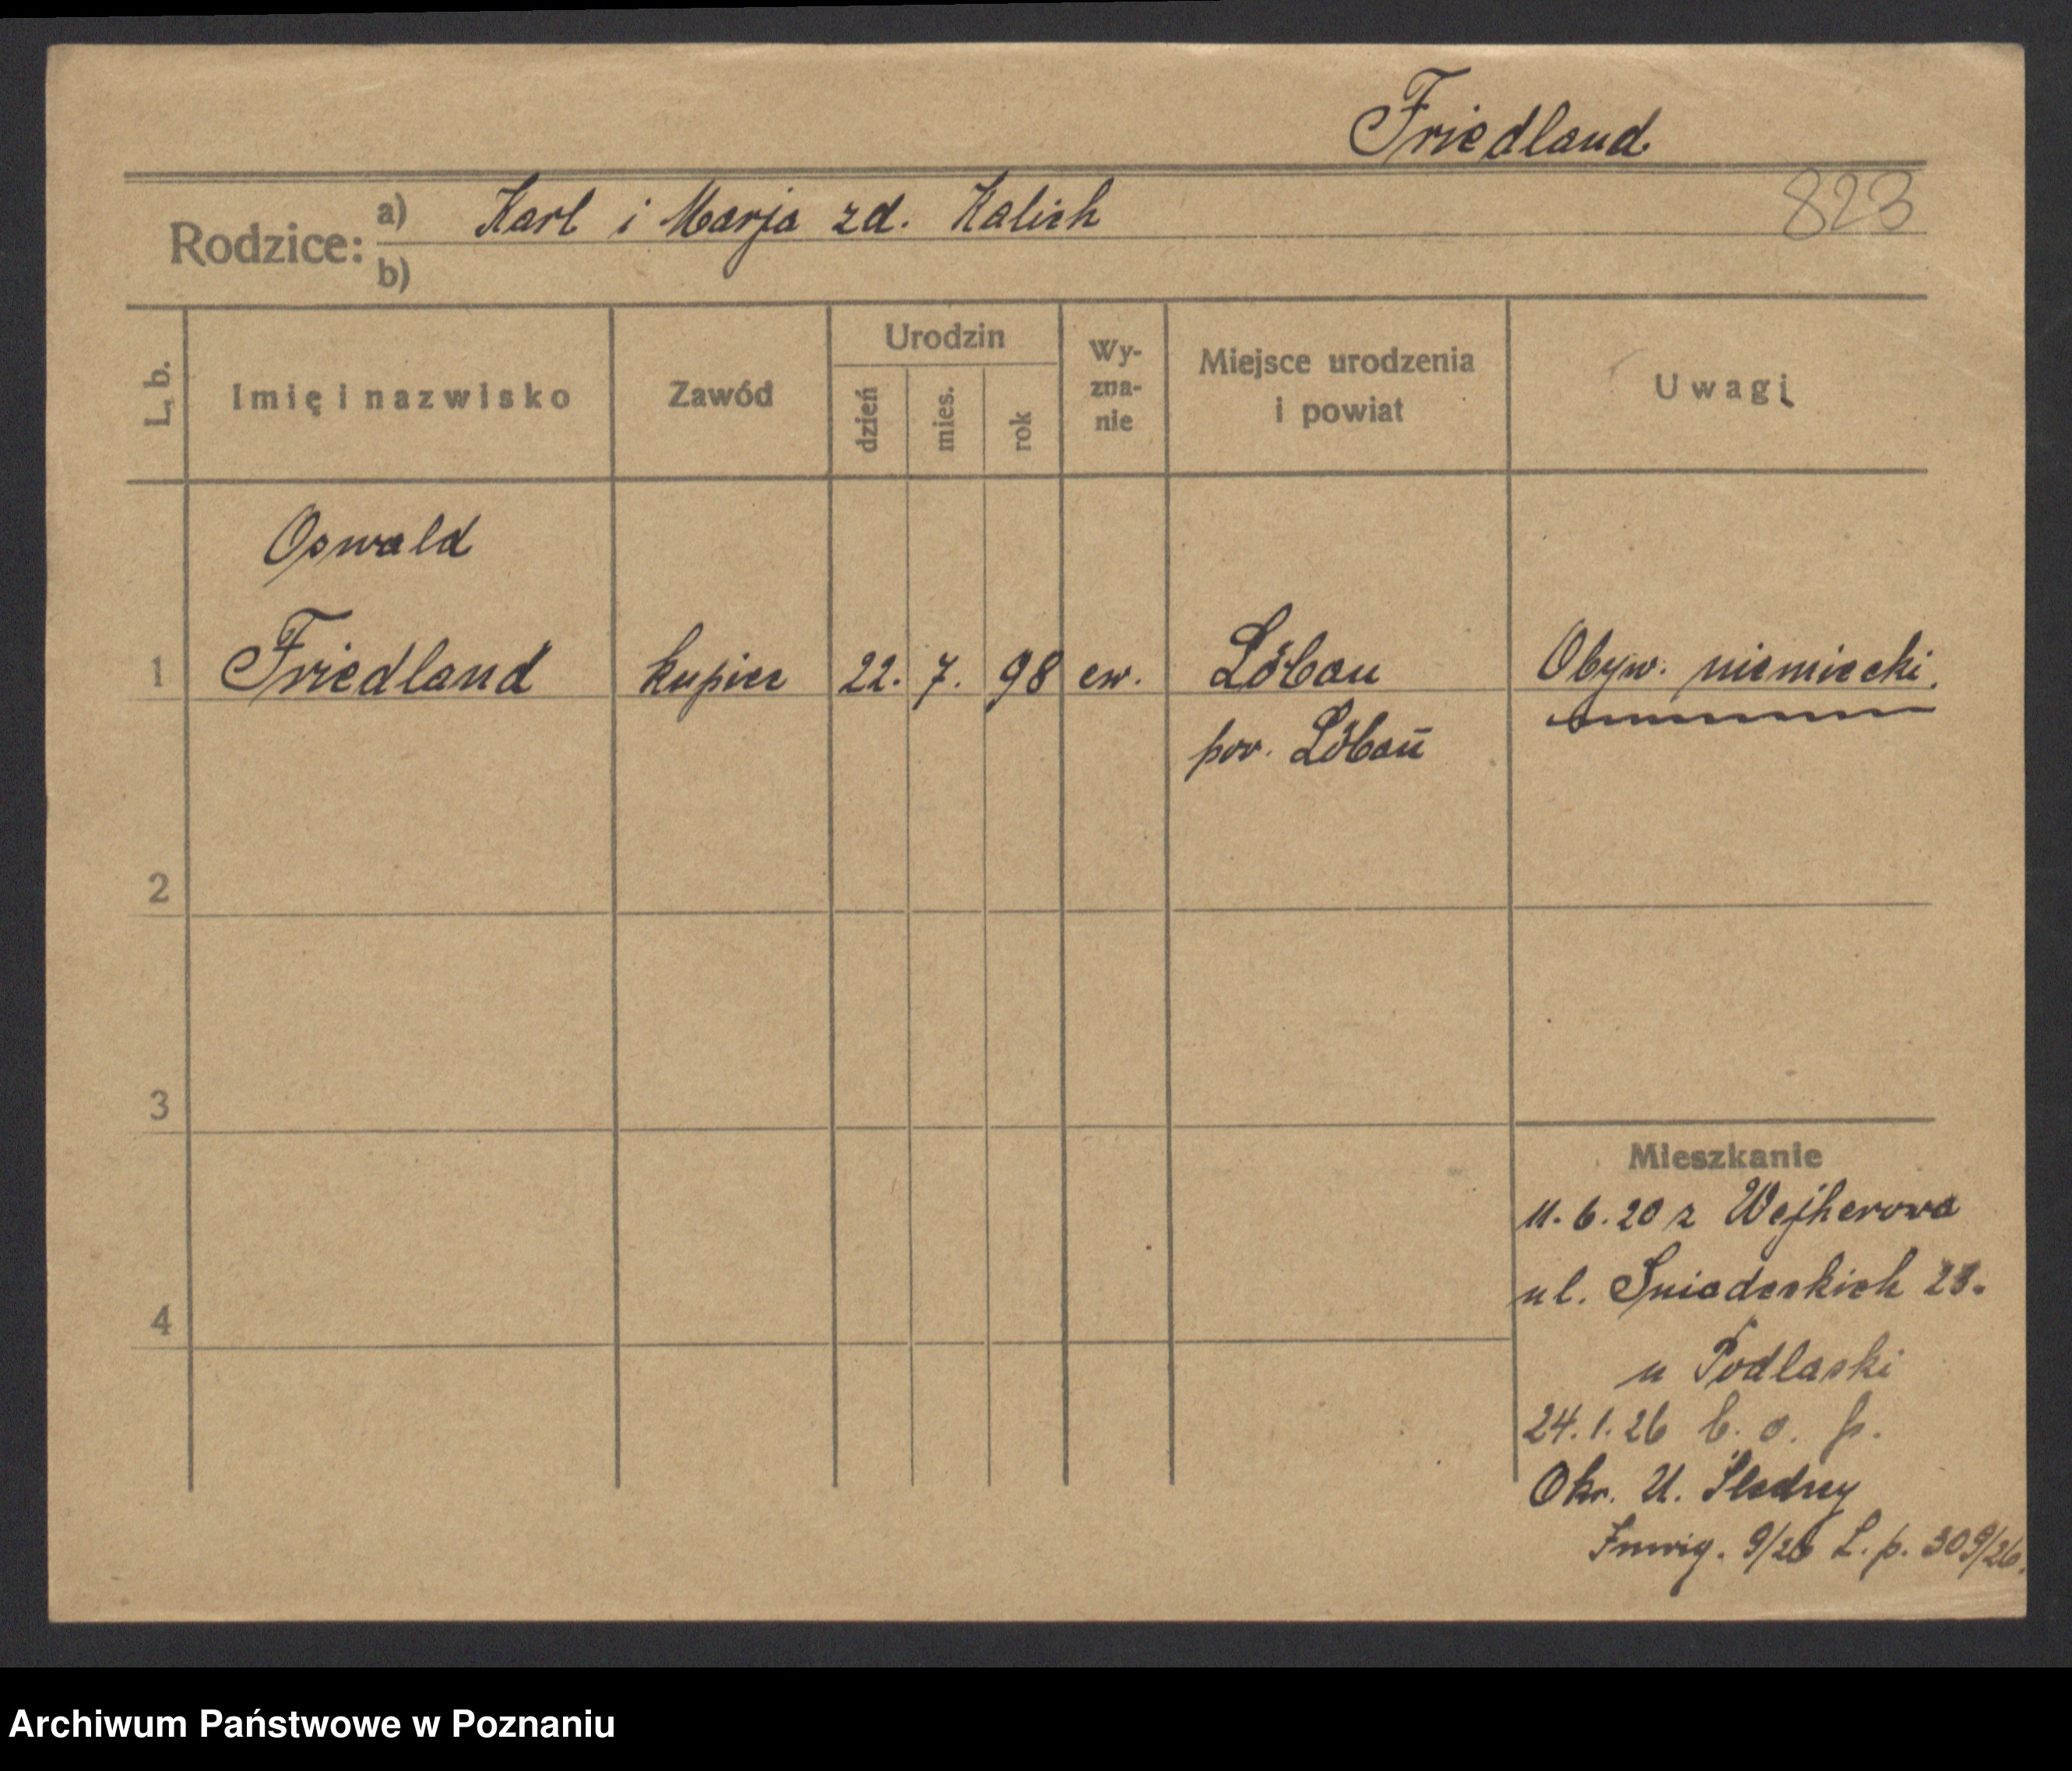 Friedland
823
Rodzice: a) Karl i Marja zd. Kalich
b)
L. b.
Imię i nazwisko
Zawód
Urodzin
dzień
mies.
rok
Wy-
zna-
nie
Miejsce urodzenia
i powiat
Uwagi
Oswald
1 Friedland kupiec 22. 7. 98 ew. Löbau Obyw. niemiecki.
pow. Löbau
2
3
4
Mieszkanie
11. 6. 20 z Wejherowa
ul. Sniadeckich 28.
u Podlaski
24. 1. 26 b. o. p.
Okr. U. Śledczy
9/26 L. p. 309/26.
Archiwum Państwowe w Poznaniu